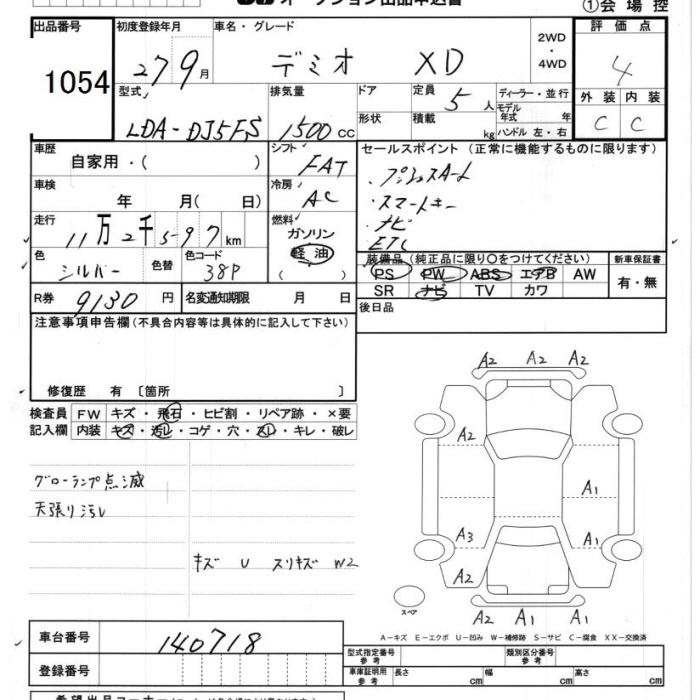 オークション出品申込書
①会場控
出品番号 初度登録年月 車名・グレード 2WD・4WD 評価点
1054 27 9月 デミオ XD 4
型式 排気量 ドア 定員 5人 ディーラー・並行 外装 内装
LDA-DJ5FS 1500cc 形状 積載 kg モデル年式 年 C C
ハンドル 左・右
車歴 自家用・( ) シフト FAT セールスポイント(正常に機能するものに限ります)
車検 年 月( 日) 冷房 AC ・プッシュスタート
・スマートキー
・ナビ
ETC
走行 11万2千597km 燃料 ガソリン 軽油 ( )
色 シルバー 色替 色コード 38P
装備品(純正品に限り○をつけてください) 新車保証書
PS PW ABS エアB AW 有・無
SR ナビ TV カワ
R券 9130円 名変通知期限 月 日 後日品
注意事項申告欄(不具合内容等は具体的に記入して下さい)
修復歴 有〔箇所 〕
検査員 FW キズ・飛石・ヒビ割・リペア跡・×要
記入欄 内装 キズ・汚レ・コゲ・穴・スレ・キレ・破レ
グローランプ点滅
天張り汚レ
キズ U スリキズ W2
A2 A2 A2
A2
A1
A3 A1
A2
スペア A2 A1 A1
A-キズ E-エクボ U-凹み W-補修跡 S-サビ C-腐食 XX-交換済
車台番号 140718
登録番号
型式指定番号 参考 類別区分番号 参考
車庫証明用 参考 長さ cm 幅 cm 高さ cm
希望出品コーナー